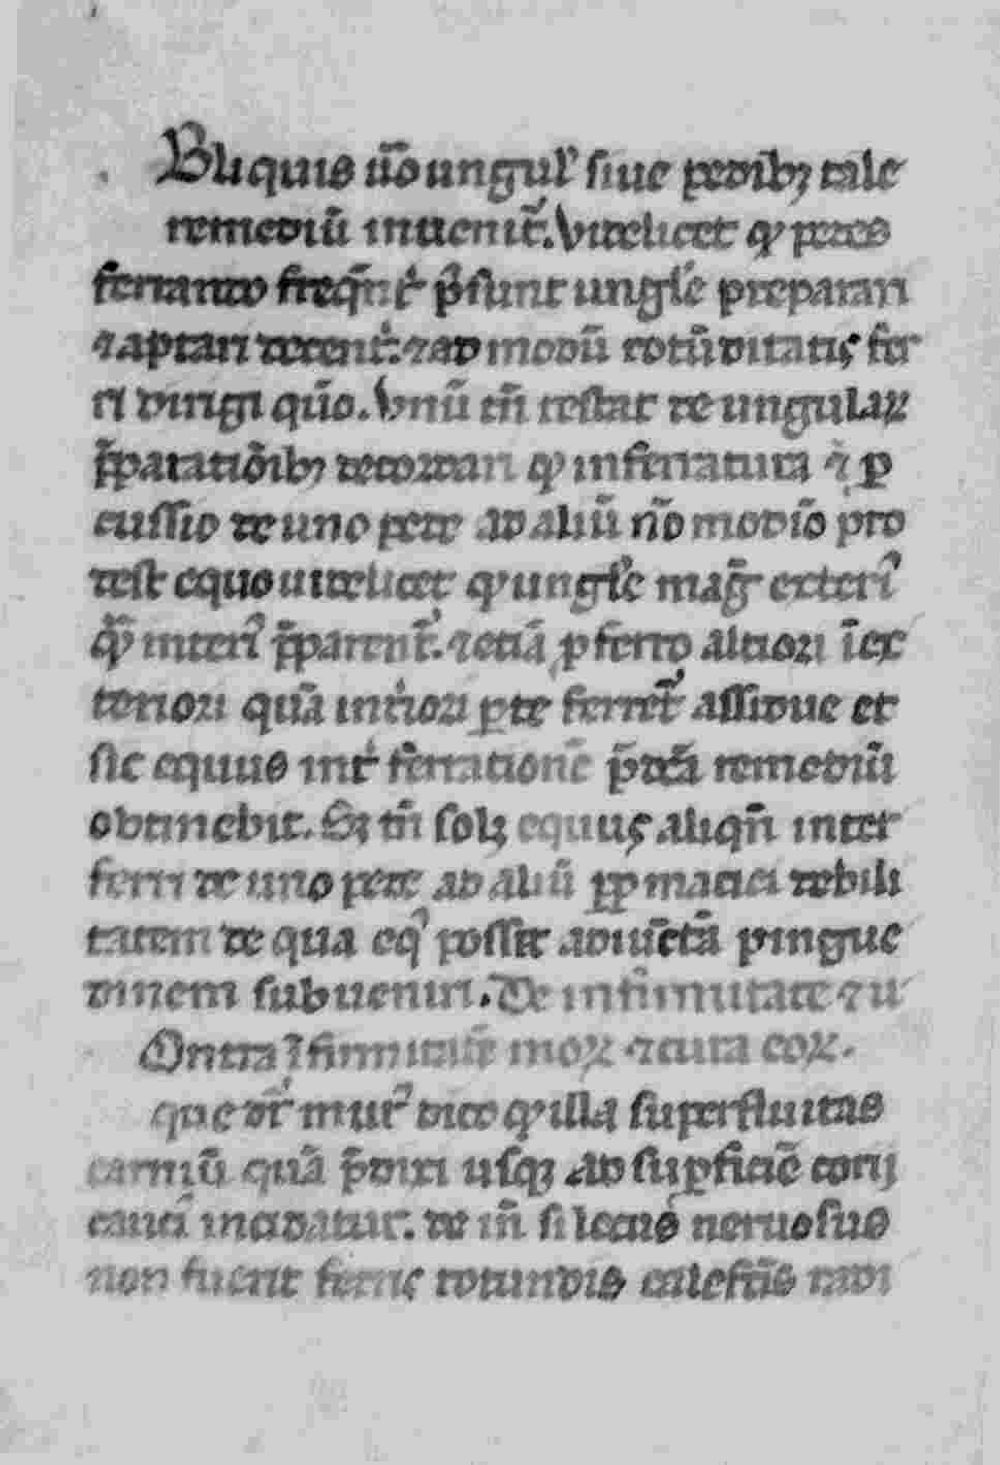 Bliquis ũo ungul᷒ siue pedibꝫ tale
remediũ inuenit᷒. Videlicet ꝙ pedes
ferrando freq̃nt᷒ p̃sunt ungl᷒e preparari
⁊ aptari decent᷒. ⁊ ad modũ rotũditatis fer
ri dirigi qũo. Vnũ tñ restat de ungulaꝝ
p̃paratiõibꝫ decorari ꝙ inferratura ⁊ ꝑ
cussio de uno pede ad aliũ nõ modiõ pro
dest equo uidelicet ꝙ ungl᷒e mag̃ exteri᷒
ꝙ̃ interi᷒ p̃parent᷒. ⁊ etiã ꝑ ferro altiori ĩ ex
teriori quã int᷒iori ꝑte ferret᷒ assidue et
sic equus int᷒ ferrationẽ p̃dcã remediũ
obtinebit. Sꝫ tñ solꝫ equus aliqñ inter
ferri de uno pede ad aliũ ꝓꝑ maciei debili
tatem de qua eq᷒ possit adiũctã pingue
dinem subueniri. De infirmitate ⁊ u
Ontra ĩfirmitatẽ moꝝ ⁊ cura eoꝝ.
que dr᷒ mur᷒ dico ꝙ illa superfluitas
carniũ quã p̃dixi usqꝫ ad suꝑficiẽ corij
cauti incidatur. de iñ si locus neruosus
non fuerit ferris rotundis calefc̃is radi